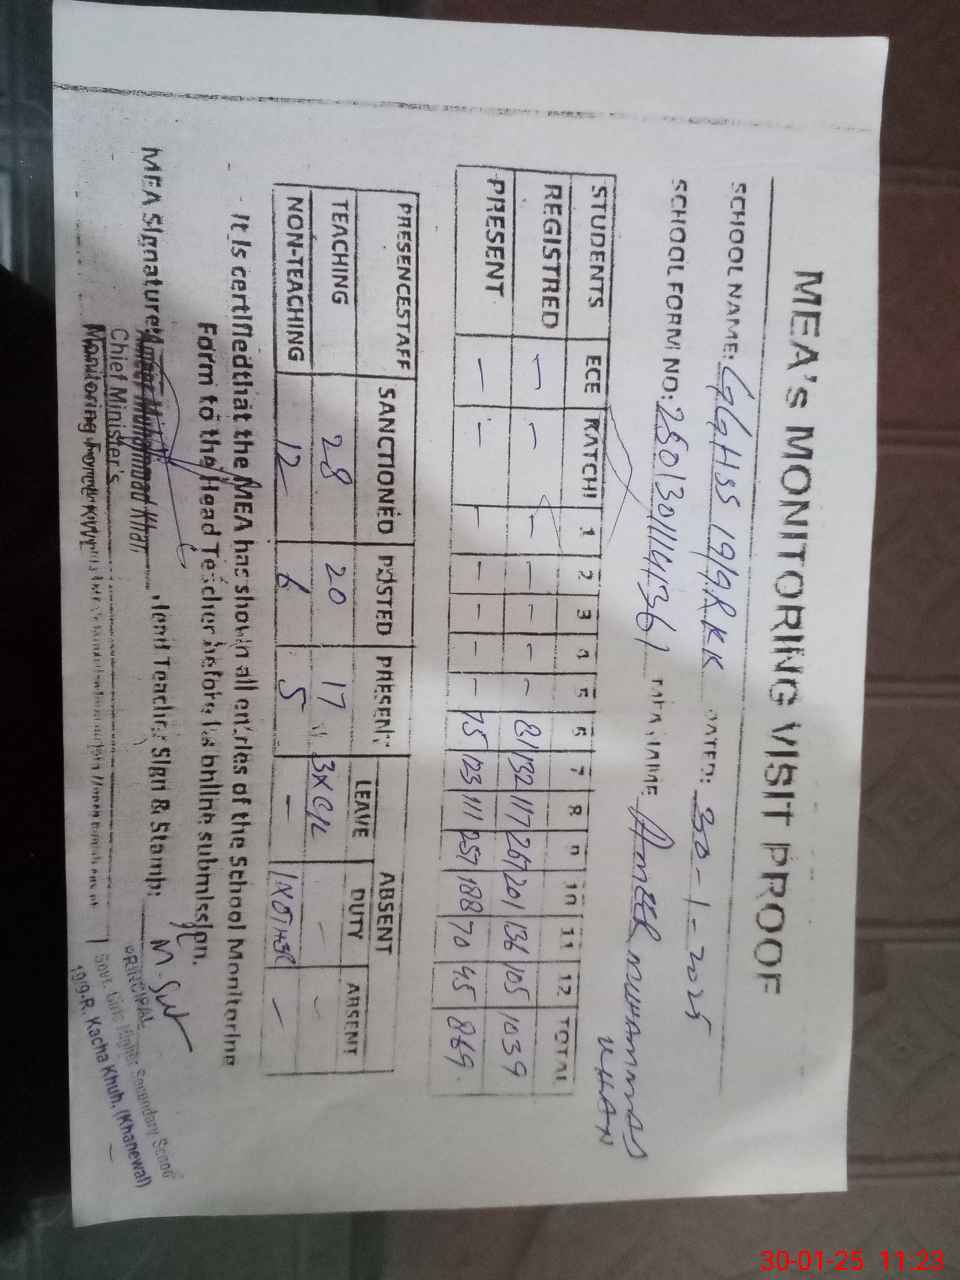 MEA'S MONITORING VISIT PROOF
SCHOOL NAME: GGHSS 19/9R KK DATED: 30-1-2025
SCHOOL FORM NO: MEA NAME AMEER MUHAMMAD KHAN
STUDENTS ECE KATCHI 1 2 3 4 5 6 7 8 9 10 11 12 TOTAL
REGISTRED - - - - - - - 81 132 117 267 201 136 105 1039
PRESENT - - - - - - - 75 123 111 257 188 70 45 869
PRESENCESTAFF SANCTIONED POSTED PRESENT ABSENT
LEAVE DUTY ABSENT
TEACHING 28 20 17 3XC/L - -
NON-TEACHING 12 6 5 - -
It is certifiedthat the MEA has shown all entries of the School Monitoring
Form to the Head Teacher before its online submission.
MEA Signature: Ameer Muhammad Khan Head Teacher Sign & Stamp:
Chief Minister's
Monitoring Force KWL
PRINCIPAL
Govt. Girls Higher Secondary School
19/9-R, Kacha Khuh, (Khanewal)
30-01-25 11:23